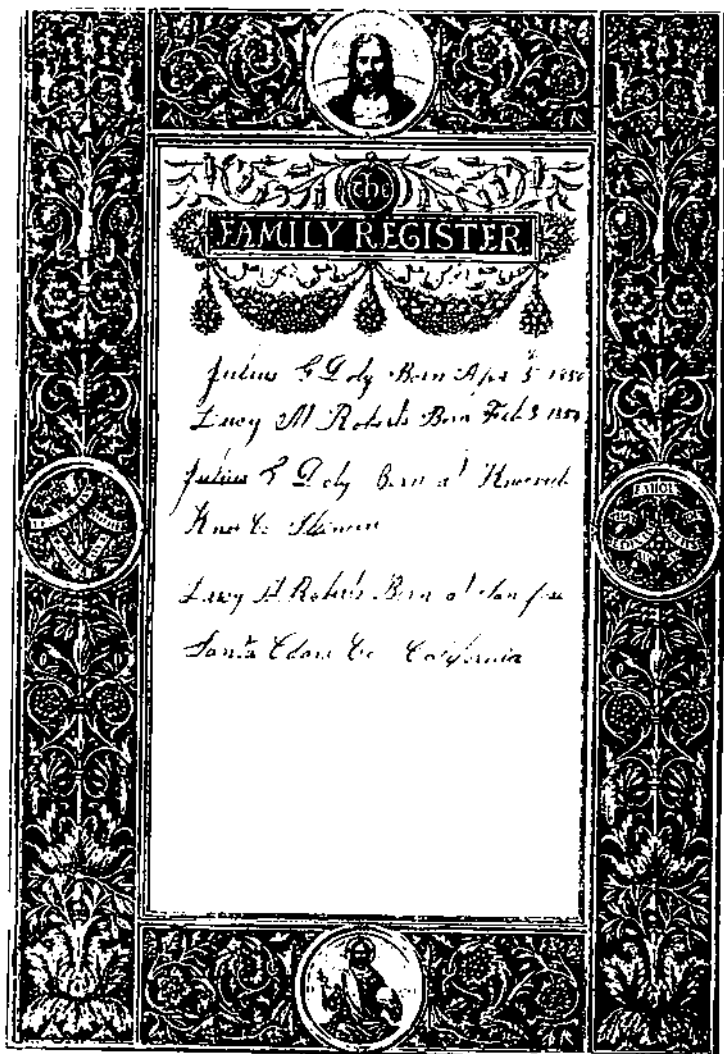 the
FAMILY REGISTER
Julius G Doty Born Apr 5 1850
Lucy M Roberts Born Feb 3 1854
Julius G Doty Born at
Knox Co Illinois
Lucy M Roberts Born at San Jose
Santa Clara Co California